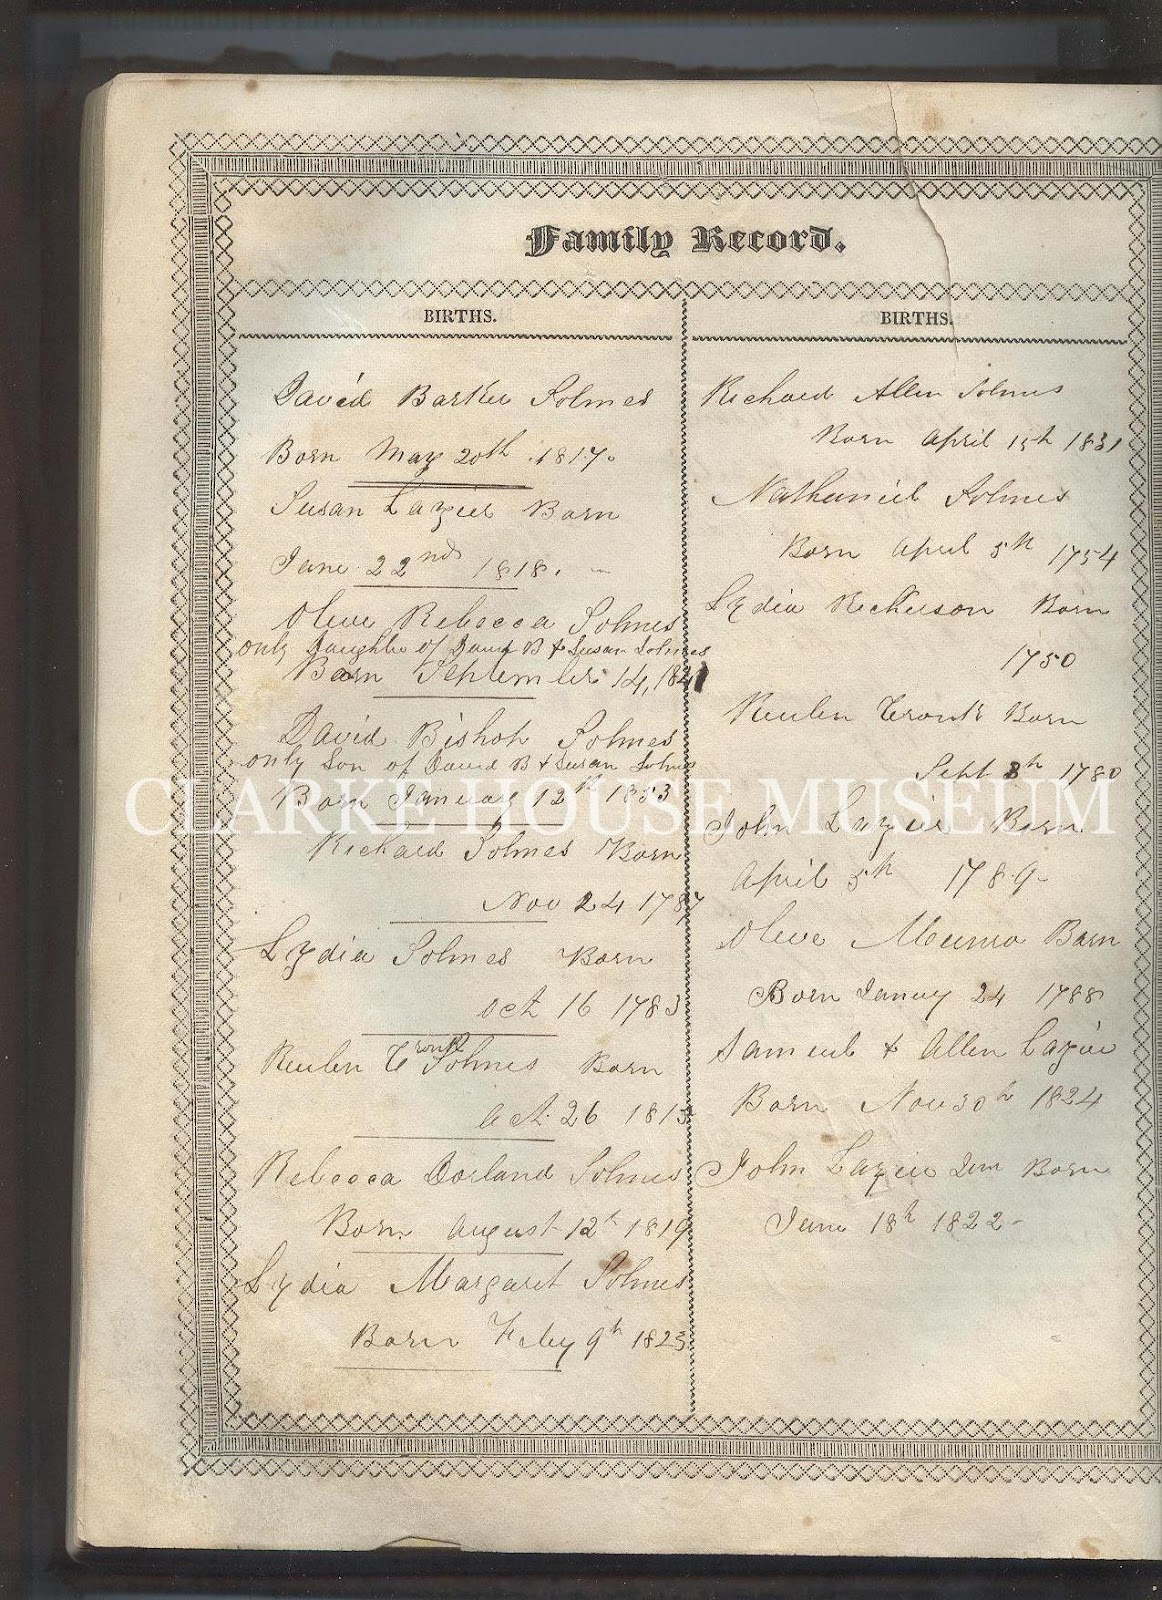 Family Record.
BIRTHS.
David Barker Solmes
Born May 20th 1817.
Susan Lazier Born
June 22nd 1818.
Olive Rebecca Solmes
only Daughter of David B & Susan Solmes
Born September 14, 1841
David Bishop Solmes
only Son of David B & Susan Solmes
Born January 12th 1853
Richard Solmes Born
Nov 24 1787
Lydia Solmes Born
Oct 16 1783
Reuben Cronk Solmes Born
Oct. 26 1815
Rebecca Dorland Solmes
Born August 12th 1819
Lydia Margaret Solmes
Born Feby 9th 1823
BIRTHS.
Richard Allen Solmes
Born April 15h 1831
Nathaniel Solmes
Born April 5th 1754
Lydia Rickerson Born
1750
Reuben Cronk Born
Sept 8th 1780
John Lazier Born
April 5th 1789-
Olive Munro Born
Born Januy 24 1788
Samuel & Allen Lazier
Born Nov 30h 1824
John Lazier Jun Born
June 18h 1822-
CLARKE HOUSE MUSEUM